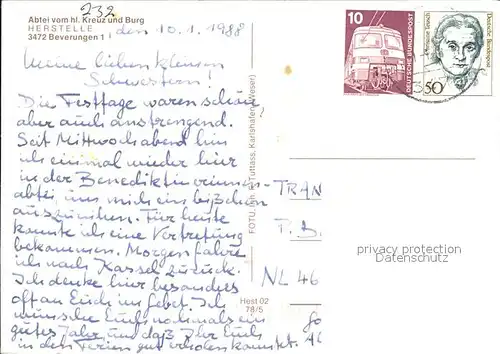 232
Abtei vom hl. Kreuz und Burg
HERSTELLE
3472 Beverungen 1
, den 10.1.1988
Meine lieben kleinen
Schwestern!
Die Festtage waren schön
aber auch anstrengend.
Seit Mittwochabend bin
ich einmal wieder hier
in der Benediktinerinnen-
abtei, um mich ein bißchen
auszuruhen. Für heute
konnte ich eine Vertretung
bekommen. Morgen fahre
ich nach Kassel zurück.
Ich denke hier besonders
oft an Euch im Gebet. Ich
wünsche Euch nochmals ein
gutes Jahr und daß Ihr Euch
in den Ferien gut erholen konntet.
FOTO: Tuttlass, Karlshafen (Weser)
Hest 02
78/5
10
DEUTSCHE BUNDESPOST
50
Deutsche Bundespost
TRAN
P.B.
NL 46
privacy protection
Datenschutz